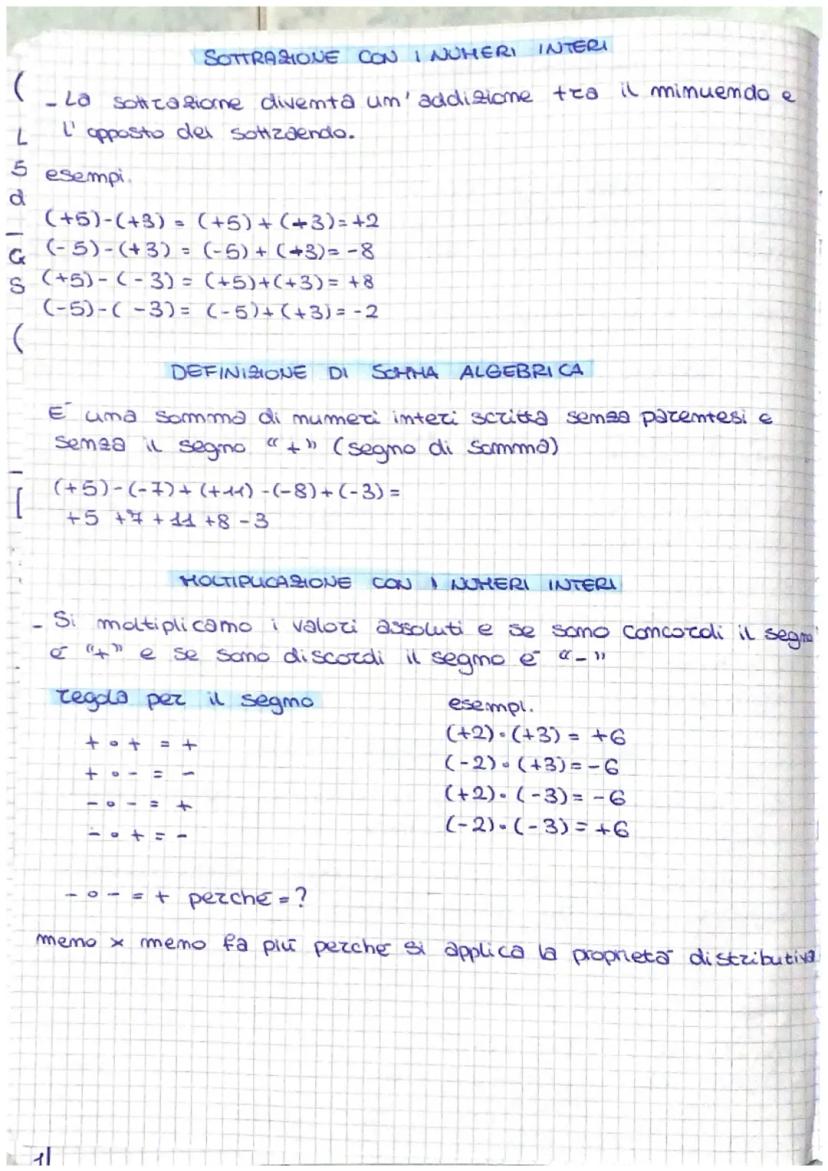 SOTTRAZIONE CON I NUMERI INTERI
- La sottrazione diventa un'addizione tra il minuendo e
l'opposto del sottraendo.
esempi.
(+5)-(+3) = (+5)+(-3)=+2
(-5)-(+3) = (-5)+(-3)= -8
(+5)-(-3) = (+5)+(+3)= +8
(-5)-(-3)= (-5)+(+3)= -2
DEFINIZIONE DI SOMMA ALGEBRICA
È una somma di numeri interi scritta senza parentesi e
senza il segno "+" (segno di somma)
(+5)-(-7)+(+11)-(-8)+(-3)=
+5 +7 +11 +8 -3
MOLTIPLICAZIONE CON I NUMERI INTERI
- Si moltiplicano i valori assoluti e se sono concordi il segno
è "+" e se sono discordi il segno è "-"
regola per il segno
+ • + = +
+ • - = -
- • - = +
- • + = -
esempi.
(+2)•(+3) = +6
(-2)•(+3)=-6
(+2)•(-3)=-6
(-2)•(-3)=+6
- • - = + perché =?
meno x meno fa più perché si applica la proprietà distributiva
(
L
5
d
G
S
(
[
1